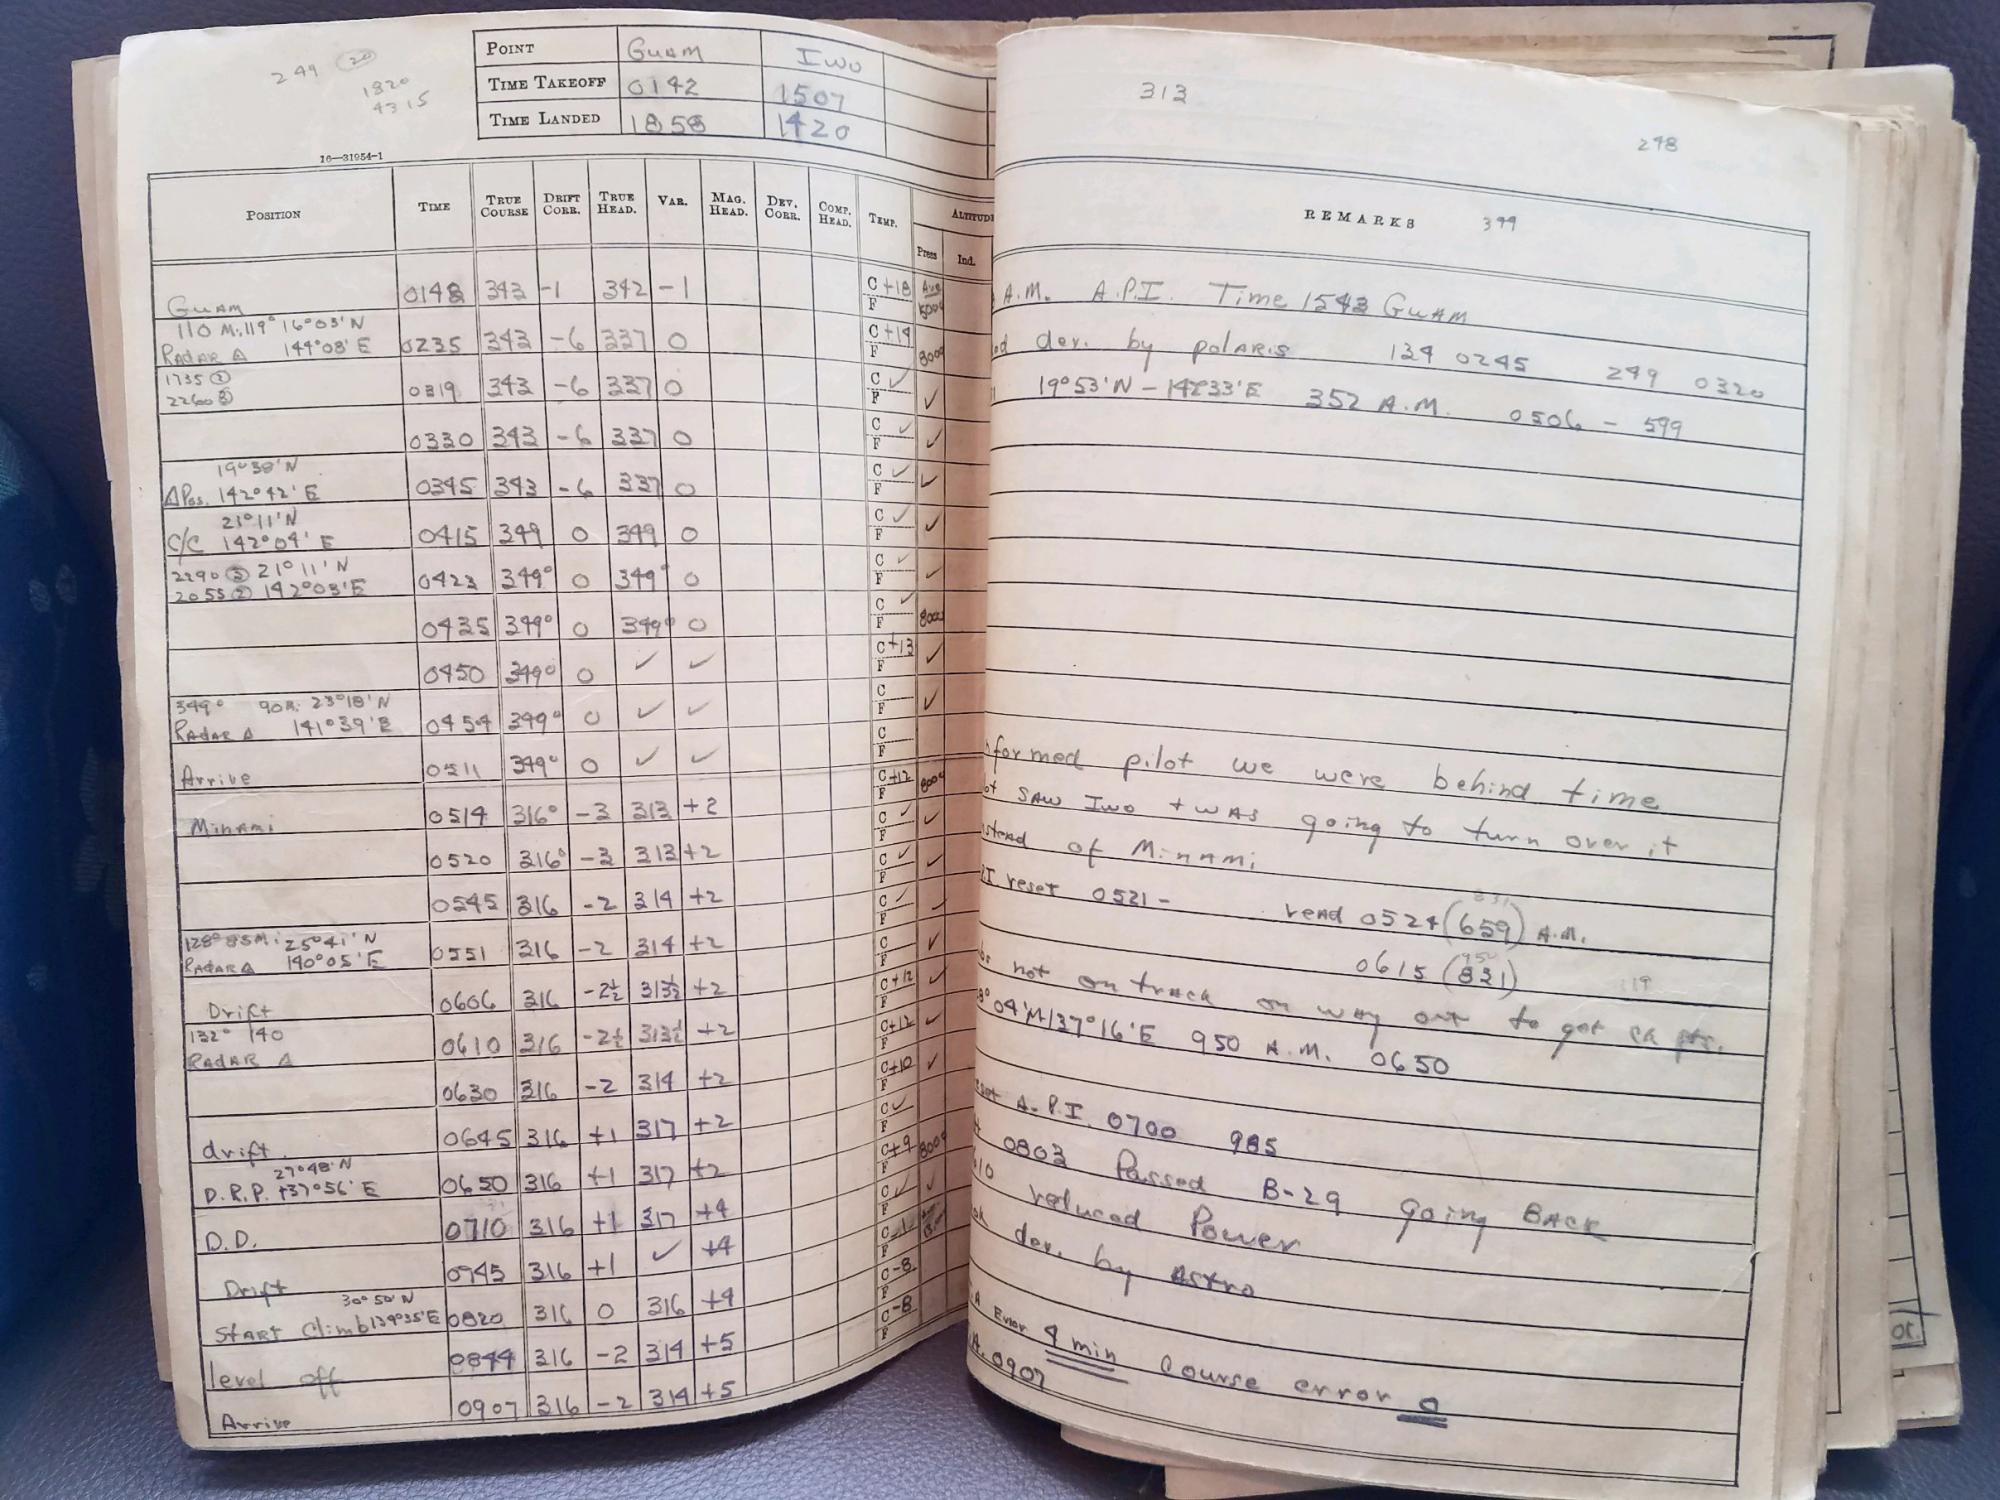 249 20
1820
4315
POINT GUAM IWO
TIME TAKEOFF 0142 1507
TIME LANDED 1858 1420
16—31954-1
POSITION TIME TRUE COURSE DRIFT CORR. TRUE HEAD. VAR. MAG. HEAD. DEV. CORR. COMP. HEAD. TEMP. ALTITUDE
Press Ind.
GUAM 0148 343 -1 342 -1 C +18 F
110 Mi, 119° 16°03'N
RADAR Δ 144°08'E 0235 343 -6 337 0 C +14 F 8000
1735 2
2260 3 0319 343 -6 337 0 C ✓ F ✓
0330 343 -6 337 0 C ✓ F ✓
19°38'N
ΔPos. 142°42'E 0345 343 -6 337 0 C ✓ F ✓
21°11'N
C/C 142°04'E 0415 349 0 349 0 C ✓ F ✓
2290 3 21°11'N
2055 2 142°03'E 0423 349° 0 349° 0 C ✓ F ✓
0435 349° 0 349° 0 C ✓ F 8000
0450 349° 0 ✓ ✓ C +13 F ✓
349° 90 23°18'N
RADAR Δ 141°39'E 0454 349° 0 ✓ ✓ C F ✓
Arrive 0511 349° 0 ✓ ✓ C F
Minami 0514 316° -3 313 +2 C +12 F 8000
0520 316° -3 313 +2 C ✓ F ✓
0545 316 -2 314 +2 C ✓ F ✓
128° 85Mi 25°41'N
RADAR Δ 140°05'E 0551 316 -2 314 +2 C ✓ F ✓
Drift 0606 316 -2½ 313½ +2 C F ✓
132° 140
RADAR Δ 0610 316 -2½ 313½ +2 C +12 F ✓
0630 316 -2 314 +2 C +12 F ✓
drift. 0645 316 +1 317 +2 C +10 F ✓
27°48'N
D.R.P. 137°56'E 0650 316 +1 317 +2 C ✓ F
D.D. 0710 316 +1 317 +4 C +9 F 8000
Drift 0745 316 +1 ✓ +4 C ✓ F ✓
30°50'N
START Climb 134°35'E 0820 316 0 316 +4 F
level off 0844 316 -2 314 +5 C -8 F
Arrive 0907 316 -2 314 +5 C -8 F
313
248
REMARKS 399
A.M. A.P.I. Time 1543 GUAM
dev. by polaris 134 0245 249 0320
19°53'N - 142°33'E 352 A.M. 0506 - 599
formed pilot we were behind time
SAW Iwo + WAS going to turn over it
stead of Minami
reset 0521 - read 0524 (659) A.M.
831
0615 (831)
950
not on track on way out to get
04'N 137°16'E 950 A.M. 0650
A.P.I. 0700 985
0803 Passed B-29 going BACK
reduced Power
dev. by Astro
Error 4 min Course error 0
0907